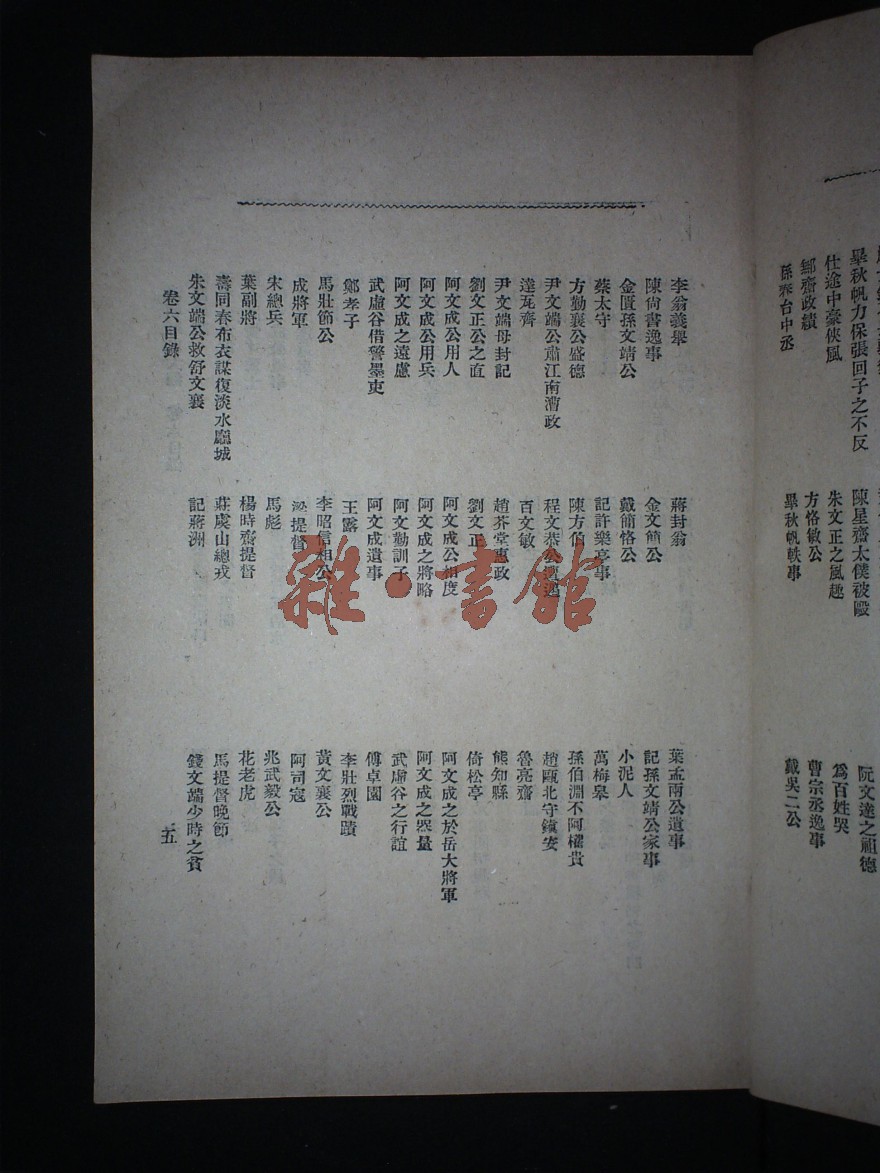 畢秋帆力保張回子之不反
仕途中豪俠風
鄒齋政績
孫春台中丞
陳星齋太僕被毆
朱文正之風趣
方恪敏公
畢秋帆軼事
阮文達之祖德
為百姓哭
曹宗丞逸事
戴吳二公
李翁義舉
陳尚書逸事
金匱孫文靖公
蔡太守
方勤襄公盛德
尹文端公肅江南漕政
達瓦齊
尹文端母封記
劉文正公之直
阿文成公用人
阿文成公用兵
阿文成之遠慮
武虛谷借警墨吏
鄭孝子
馬壯節公
成將軍
宋總兵
葉副將
壽同春布衣謀復淡水廳城
朱文端公救舒文襄
蔣封翁
金文簡公
戴簡恪公
記許樂亭事
陳方伯
程文恭公遭遇
百文敏
趙芥堂惠政
劉文正
阿文成公相度
阿文成之將略
阿文勤訓子
阿文成遺事
王露
李昭信相公
梁提督
馬彪
楊時齋提督
莊虞山總戎
記蔣洲
葉孟兩公遺事
記孫文靖公家事
小泥人
萬梅皋
孫伯淵不阿權貴
趙甌北守鎮安
魯亮儕
熊知縣
倚松亭
阿文成之於岳大將軍
阿文成之器量
武虛谷之行誼
傅卓園
李壯烈戰蹟
黃文襄公
阿司寇
兆武毅公
花老虎
馬提督晚節
錢文端少時之貧
卷六目錄
五
雜·書館